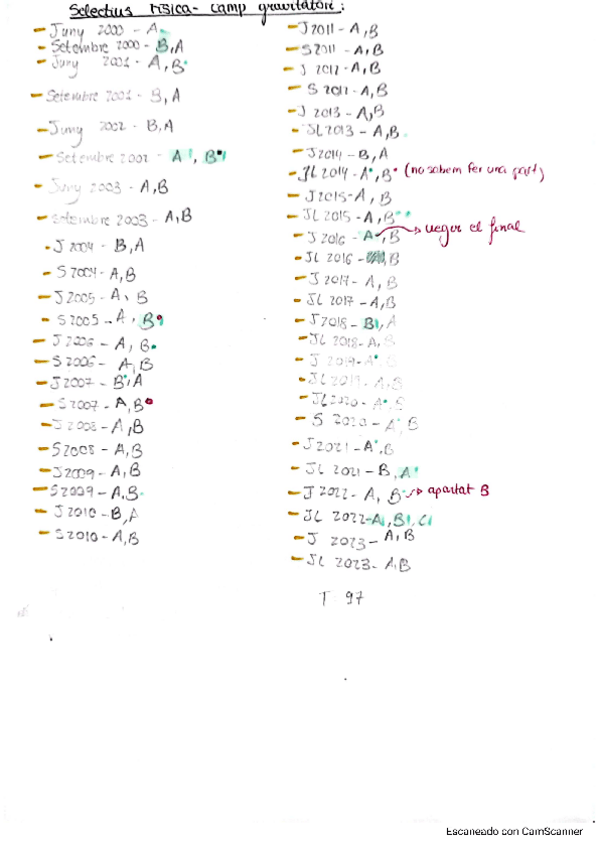 Selectius Física - camp gravitatori:
- Juny 2000 - A
- Setembre 2000 - B, A
- Juny 2001 - A, B
- Setembre 2001 - B, A
- Juny 2002 - B, A
- Setembre 2002 - A, B
- Juny 2003 - A, B
- Setembre 2003 - A, B
- J 2004 - B, A
- S 2004 - A, B
- J 2005 - A, B
- S 2005 - A, B
- J 2006 - A, B
- S 2006 - A, B
- J 2007 - B, A
- S 2007 - A, B
- J 2008 - A, B
- S 2008 - A, B
- J 2009 - A, B
- S 2009 - A, B
- J 2010 - B, A
- S 2010 - A, B
- J 2011 - A, B
- S 2011 - A, B
- J 2012 - A, B
- S 2012 - A, B
- J 2013 - A, B
- JL 2013 - A, B
- J 2014 - B, A
- JL 2014 - A, B (no sabem fer una part)
- J 2015 - A, B
- JL 2015 - A, B
- J 2016 - A, B → veger el final
- JL 2016 - B
- J 2017 - A, B
- JL 2017 - A, B
- J 2018 - B, A
- JL 2018 - A, B
- J 2019 - A, B
- JL 2019 - A, B
- JL 2020 - A, B
- S 2020 - A, B
- J 2021 - A, B
- JL 2021 - B, A
- J 2022 - A, B → apartat B
- JL 2022 - A, B, C
- J 2023 - A, B
- JL 2023 - A, B
T 97
Escaneado con CamScanner